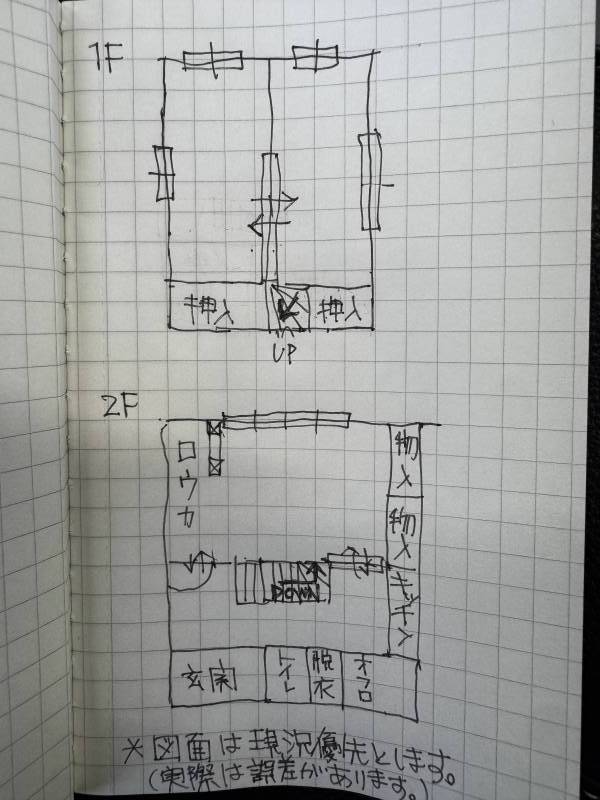 1F
押入
押入
UP
2F
ロウカ
物入
物入
キッチン
DOWN
玄関
トイレ
脱衣
オフロ
※図面は現況優先とします。
(実際は誤差があります。)